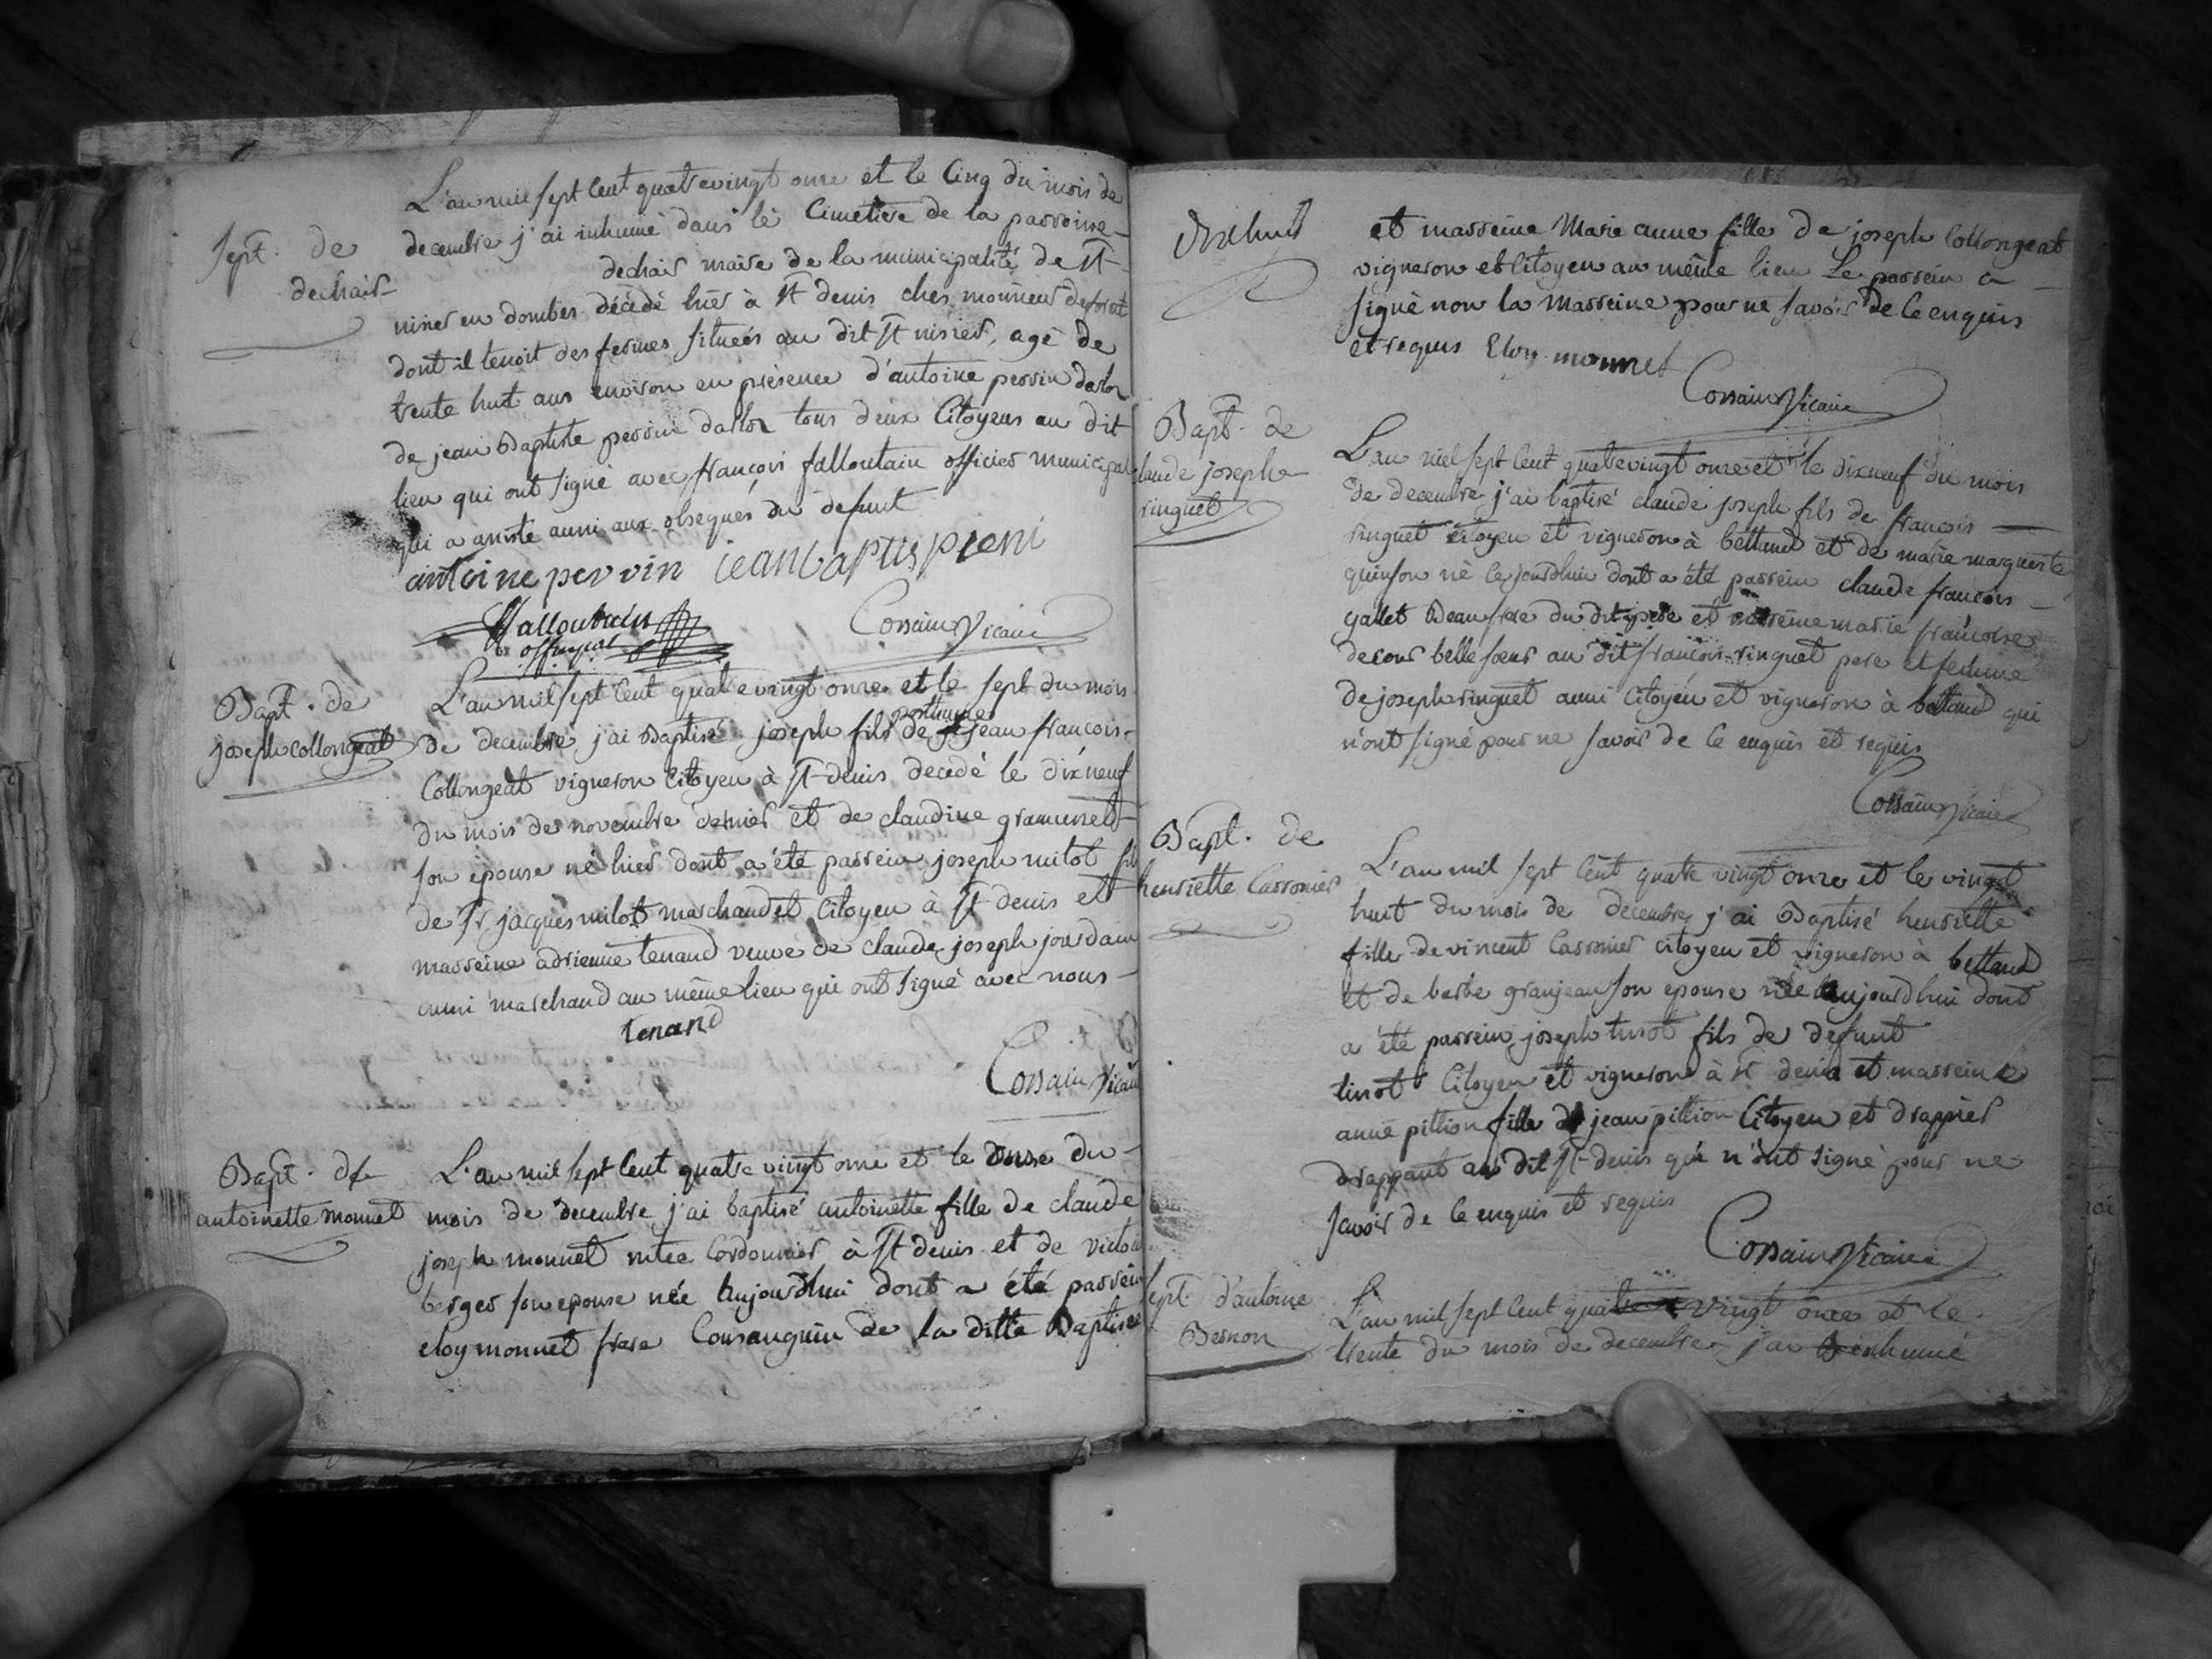 Sept. de
dechair
L'an mil sept cent quatrevingt onze et le Cinq du mois de
decembre j'ai inhumé dans le Cimetiere de la parroisse
dechair maire de la municipalité de St
nisier en dombes décédé hier à St denis chés monsieur deforest
dont il tenoit des fermes situées au dit St nisier, agé de
trente huit ans environ en présence d'antoine perrin
de jean Baptiste perrin tous deux Citoyens au dit
lieu qui ont signé avec françois falloutain officier municipal
qui a assisté aussi aux obseques du defunt
antoine pervin jean baptis pieni
falloutain
off municipal
Corsain Vicaire
Bapt. de
joseph collongeat
L'an mil sept Cent quatrevingt onze et le sept du mois
posthume
de decembre j'ai Baptisé joseph fils de jean françois
Collongeat vigneron Citoyen à St denis decedé le dixneuf
du mois de novembre dernier et de claudine grammeret
son epouse né hier dont a été parrein joseph milot fils
de Sr jacques milot marchand et Citoyen à St denis et
marreine adrienne tenand veuve de claude joseph jourdain
aussi marchand au même lieu qui ont signé avec nous
tenand
Corsain Vicaire
Bapt. de
antoinette monnet
L'an mil sept Cent quatre vingt onze et le douse du
mois de decembre j'ai baptisé antoinette fille de claude
joseph monnet Cordonnier à St denis et de
berger son epouse née aujourdhui dont a été parrein
eloy monnet frere Consanguin de la ditte Baptisée
dixhuit
et marreine Marie anne fille de joseph Collongeat
vigneron et Citoyen au même lieu Le parrein a
signé non la Marreine pour ne savoir de ce enquis
et requis Eloy monnet
Corsain Vicaire
Bapt. de
claude joseph
ringuet
L'an mil sept Cent quatrevingt onze et le dixneuf du mois
de decembre j'ai baptisé claude joseph fils de françois
ringuet citoyen et vigneron à bettand et de marie marguerite
quinson né ce jourdhui dont a été parrein claude françois
gallet Beaufrere du dit pere et marreine marie françoise
decour belle sœur au dit françois ringuet pere et femme
de joseph ringuet aussi Citoyen et vigneron à bettand qui
n'ont signé pour ne savoir de ce enquis et requis
Corsain Vicaire
Bapt. de
henriette Carronier
L'an mil sept Cent quatre vingt onze et le vingt
huit du mois de decembre j'ai Baptisé henriette
fille de vincent Carronier citoyen et vigneron à bettand
et de barbe granjean son epouse née aujourdhui dont
a été parrein joseph tirot fils de defunt
tirot Citoyen et vigneron à St denis et marreine
anne pittion fille de jean pittion Citoyen et drappier
drappant au dit St denis qui n'ont signé pour ne
savoir de ce enquis et requis
Corsain Vicaire
Sept. d'antoine
Bernon
L'an mil sept Cent quatre vingt onze et le
trente du mois de decembre j'ai inhumé